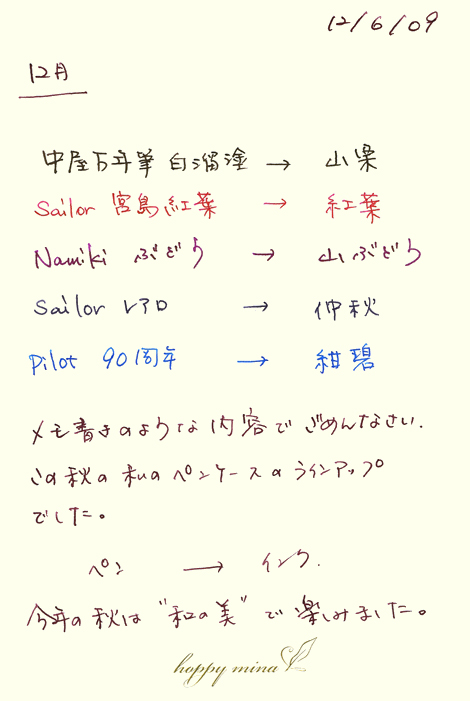 12/6/09
12月
中屋万年筆 白溜塗 → 山栗
Sailor 宮島紅葉 → 紅葉
Namiki ぶどう → 山ぶどう
Sailor レアロ → 仲秋
Pilot 90周年 → 紺碧
メモ書きのような内容でごめんなさい.
この秋の私のペンケースのラインアップ
でした。
ペン → インク.
今年の秋は"和の美"で楽しみました。
happy mina